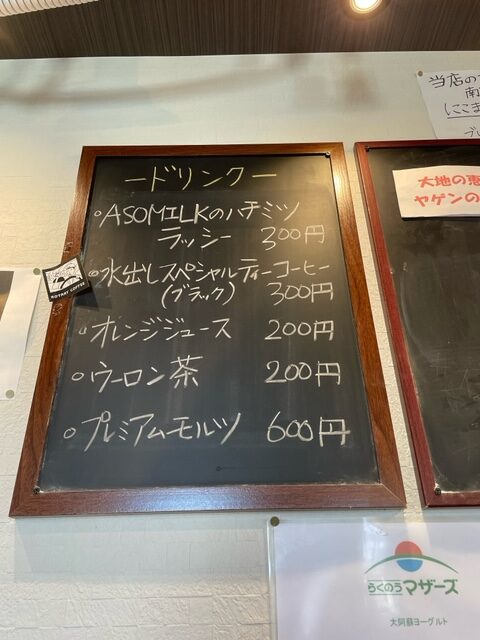 ードリンクー
○ASOMILKのハチミツ
ラッシー 300円
○水出しスペシャルティーコーヒー
(ブラック) 300円
○オレンジジュース 200円
○ウーロン茶 200円
○プレミアムモルツ 600円
当店の
南
にこま
大地の恵
ヤゲンの
らくのうマザーズ
大阿蘇ヨーグルト